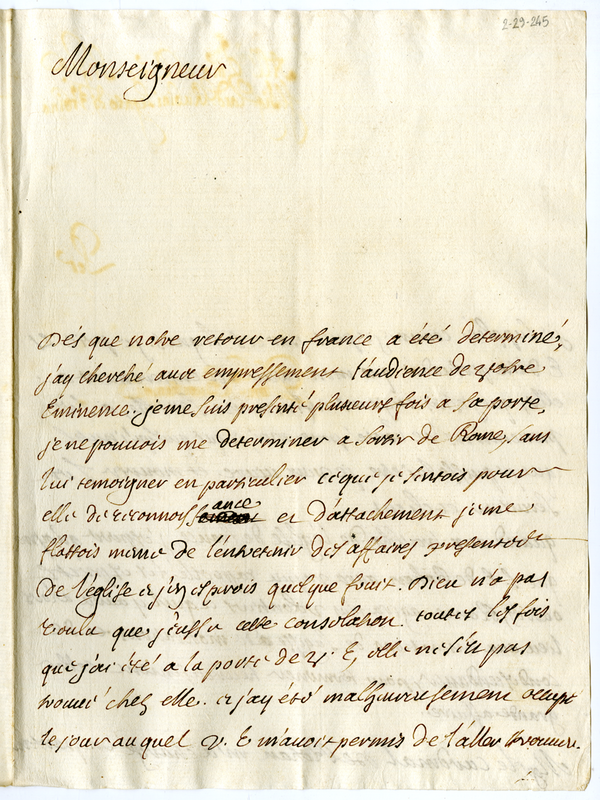 2-29-245
Monseigneur
Dés que notre retour en france a été determiné,
j'ay cherché avec empressement l'audience de votre
Éminence. je me suis presenté plusieurs fois a sa porte,
je ne pouvois me determiner a sortir de Rome, sans
lui temoigner en particulier ce que je sentois pour
elle de reconnoissance et d'attachement je me
flattois meme de l'entretenir des affaires presentes
de l'église et j'en esperois quelque fruit. Dieu n'a pas
voulu que j'eusse cette consolation. toutes les fois
que j'ai été a la porte de v. E, elle ne s'est pas
trouvé chez elle. et j'ay été malheureusement occupé
le jour auquel v. E m'avoit permis de l'aller trouver.